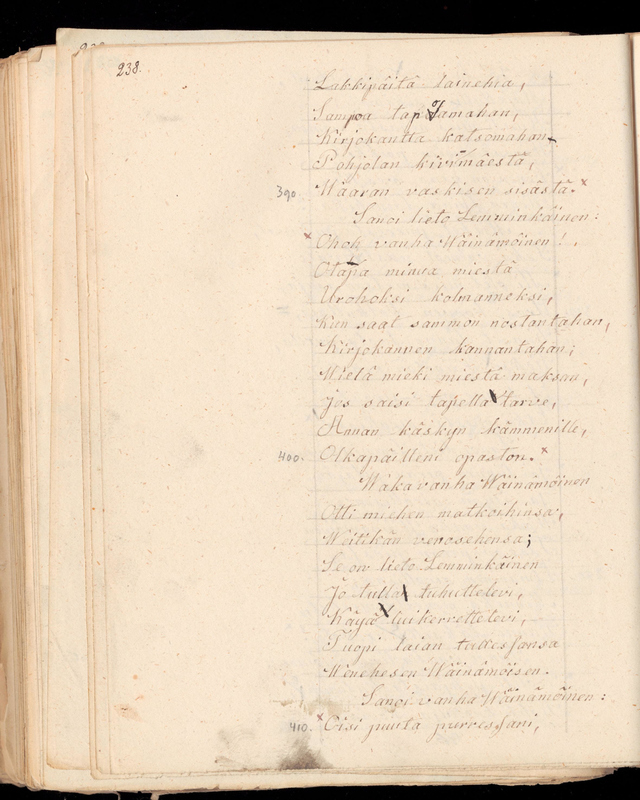 238.
Lakkipäitä lainehia,
Sampoa tapJamahan,
Kirjokantta katsomahan
Pohjolan kivimäestä,
390. Waaran vaskisen sisästä.
Sanoi lieto Lemminkäinen:
Ohoh vanha Wäinämöinen!
Otapa minua miestä
Urohoksi kolmanneksi,
Kun saat sammon nostantahan,
Kirjokannen kannantahan;
Wielä mieki miestä maksan,
Jos saisi tapella tarve,
Annan käskyn kämmenille,
400. Olkapäilleni opaston.
Waka vanha Wäinämöinen
Otti miehen matkoihinsa,
Weitikän verosehensa;
Se on lieto Lemminkäinen
Jo tulla tuhuttelevi,
Käyä luikerrettelevi,
Tuopi laian tullessansa
Wenehesen Wäinämöisen.
Sanoi vanha Wäinämöinen:
410. Oisi puuta purressani,